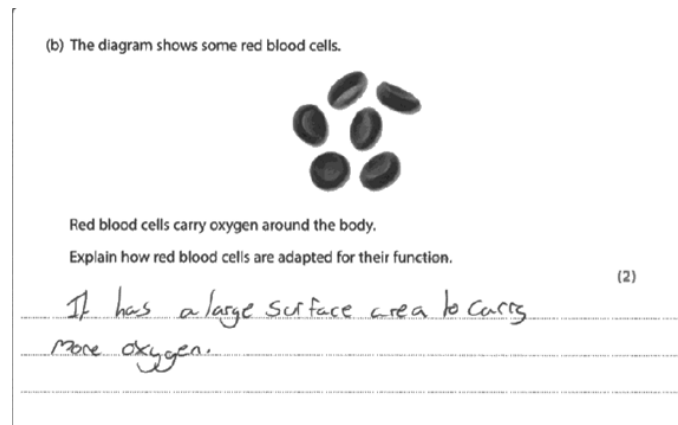 (b) The diagram shows some red blood cells.
Red blood cells carry oxygen around the body.
Explain how red blood cells are adapted for their function.
(2)
It has a large surface area to carry
more oxygen.